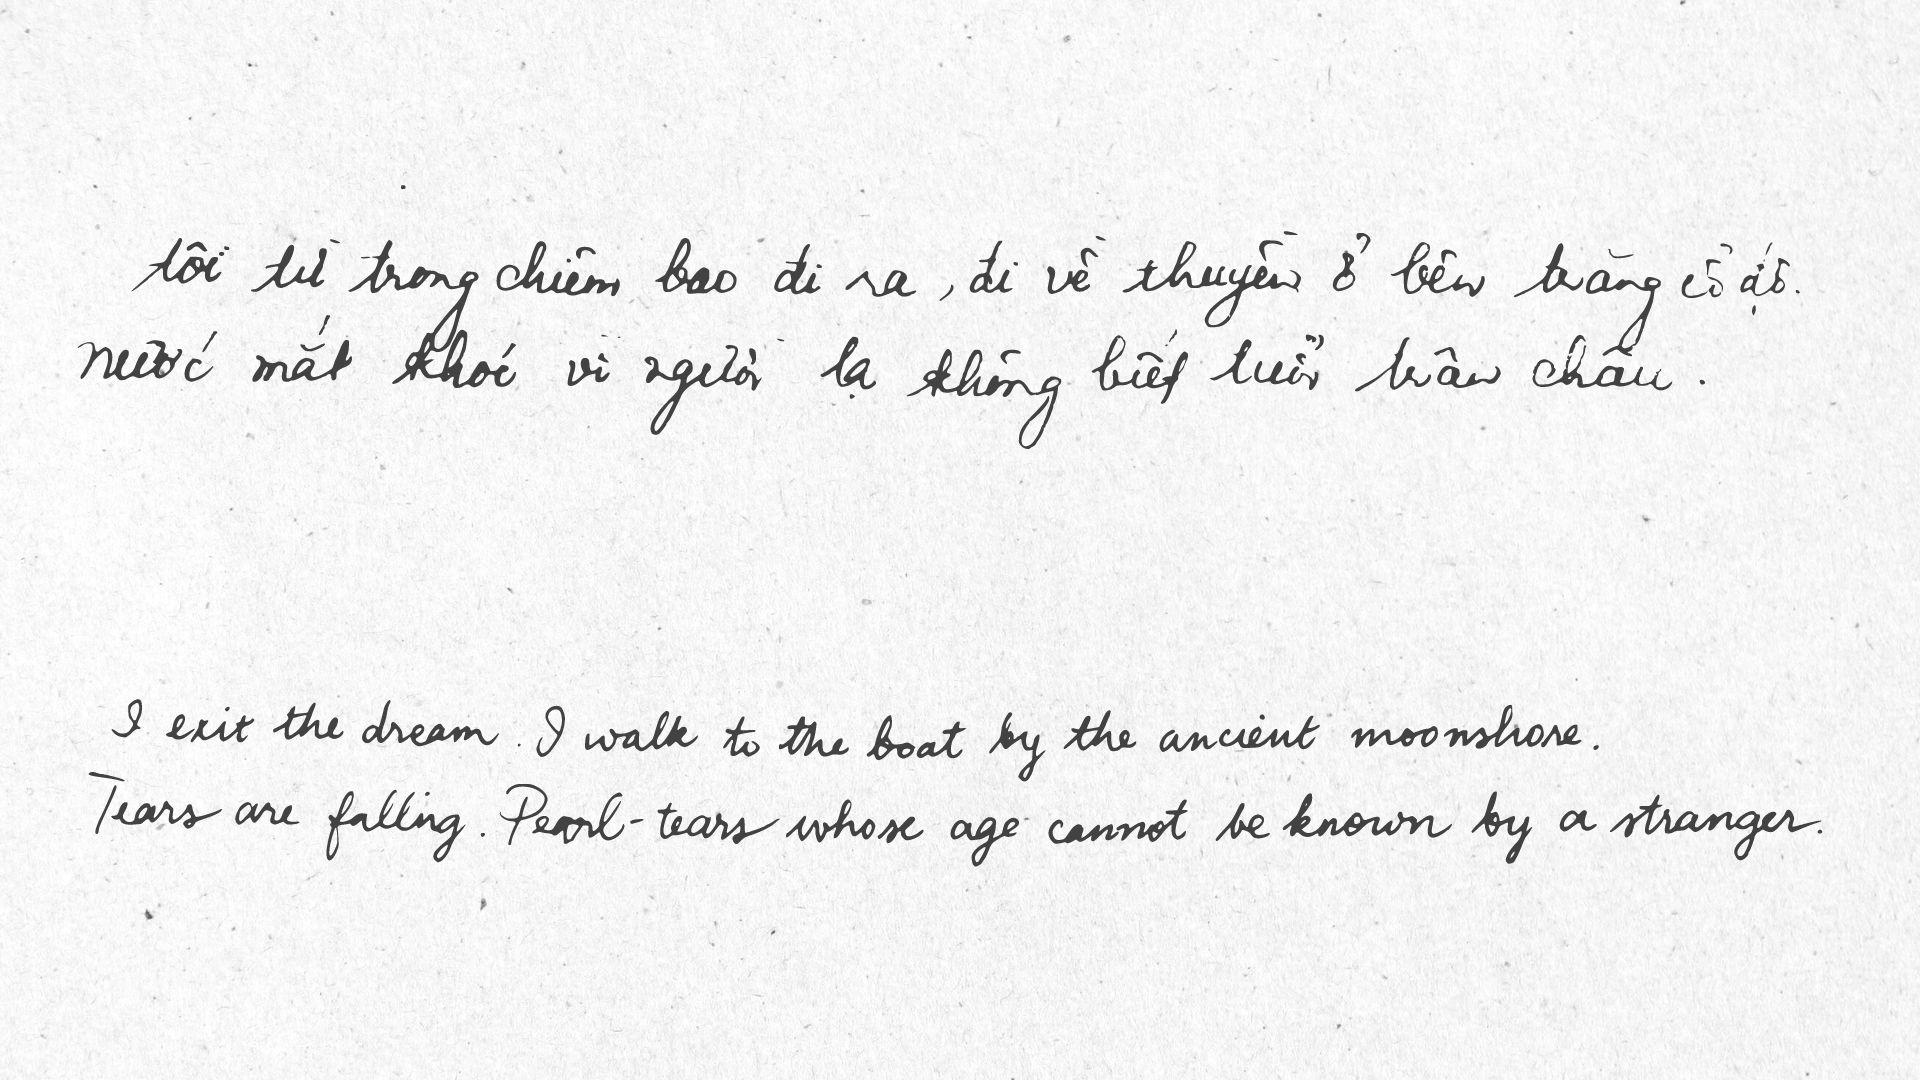 tôi từ trong chiêm bao đi ra, đi về thuyền ở bên trăng cổ độ.
nước mắt khóc vì người lạ không biết tuổi trân châu.
I exit the dream. I walk to the boat by the ancient moonshore.
Tears are falling. Pearl-tears whose age cannot be known by a stranger.